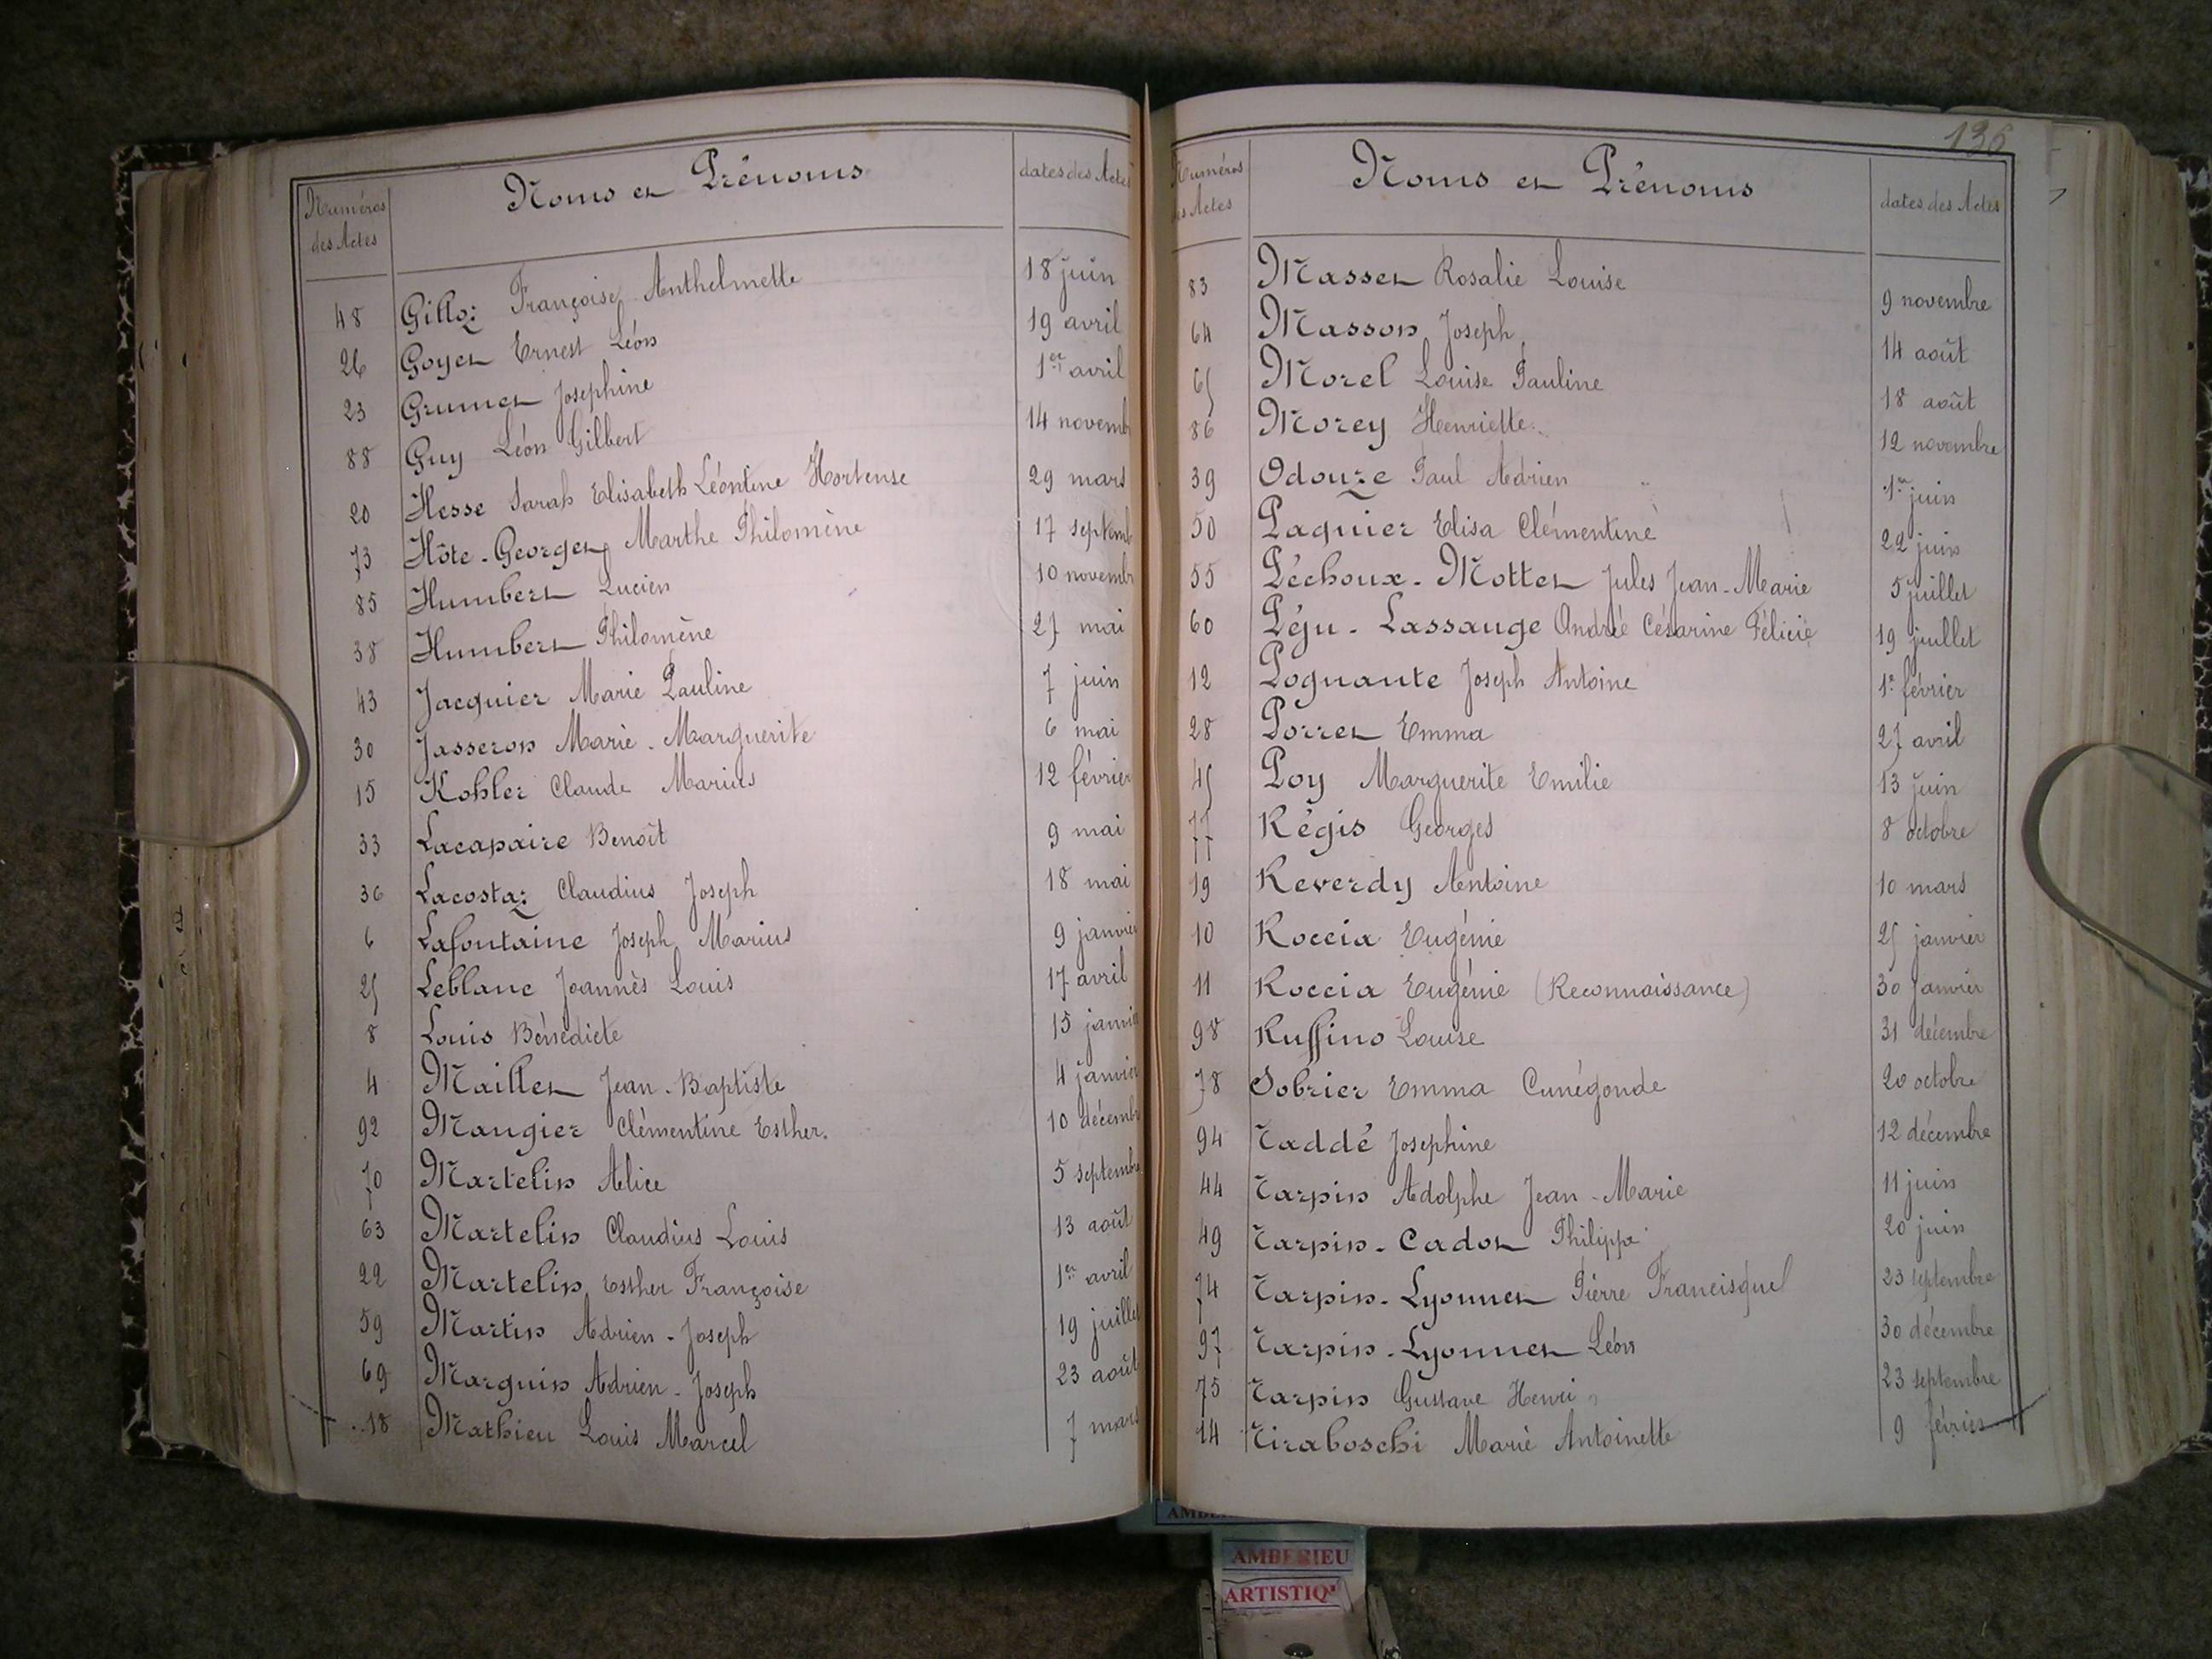 Numéros des Actes Noms et Prénoms dates des Actes
48 Gilloz Françoise Anthelmette 18 juin
26 Goyet Ernest Léon 19 avril
23 Grumet Josephine 1er avril
88 Guy Léon Gilbert 14 novemb
20 Hesse Sarah Elisabeth Léontine Hortense 29 mars
73 Hôte-Georget Marthe Philomène 17 septemb
85 Humbert Lucien 10 novembr
38 Humbert Philomène 27 mai
43 Jacquier Marie Pauline 7 juin
30 Jasseron Marie-Marguerite 6 mai
15 Kohler Claude Marius 12 février
33 Lacapaire Benoît 9 mai
36 Lacostaz Claudius Joseph 18 mai
6 Lafontaine Joseph Marius 9 janvier
25 Leblanc Joannès Louis 17 avril
8 Louis Bénédicte 15 janvie
4 Maillet Jean-Baptiste 4 janvier
92 Mangier Clémentine Esther. 10 décemb
70 Martelin Alice 5 septembre
63 Martelin Claudius Louis 13 août
22 Martelin Esther Françoise 1er avril
59 Martin Adrien-Joseph 19 juillet
69 Marguin Adrien-Joseph 23 août
18 Mathieu Louis Marcel 7 mars
136
Numéros des Actes Noms et Prénoms dates des Actes
83 Masset Rosalie Louise 9 novembre
64 Masson Joseph 14 août
65 Morel Louise Pauline 18 août
86 Morey Henriette 12 novembre
39 Odouze Paul Adrien 1er juin
50 Paquier Elisa Clémentine 22 juin
55 Péchoux-Mottet Jules Jean-Marie 5 juillet
60 Péju-Lassauge André Césarine Félicie 19 juillet
12 Pognante Joseph Antoine 1er février
28 Porret Emma 27 avril
45 Poy Marguerite Emilie 13 juin
77 Régis Georges 8 octobre
19 Reverdy Antoine 10 mars
10 Roccia Eugénie 25 janvier
11 Roccia Eugénie (Reconnaissance) 30 janvier
98 Ruffino Louise 31 décembre
78 Sobrier Emma Cunégonde 20 octobre
94 Taddé Josephine 12 décembre
44 Tarpin Adolphe Jean-Marie 11 juin
49 Tarpin-Cadot Philippe 20 juin
74 Tarpin-Lyonnet Pierre Francisquel 23 septembre
97 Tarpin-Lyonnet Léon 30 décembre
75 Tarpin Gustave Henri 23 septembre
14 Tiraboschi Marie Antoinette 9 février
AMBERIEU
ARTISTIQ